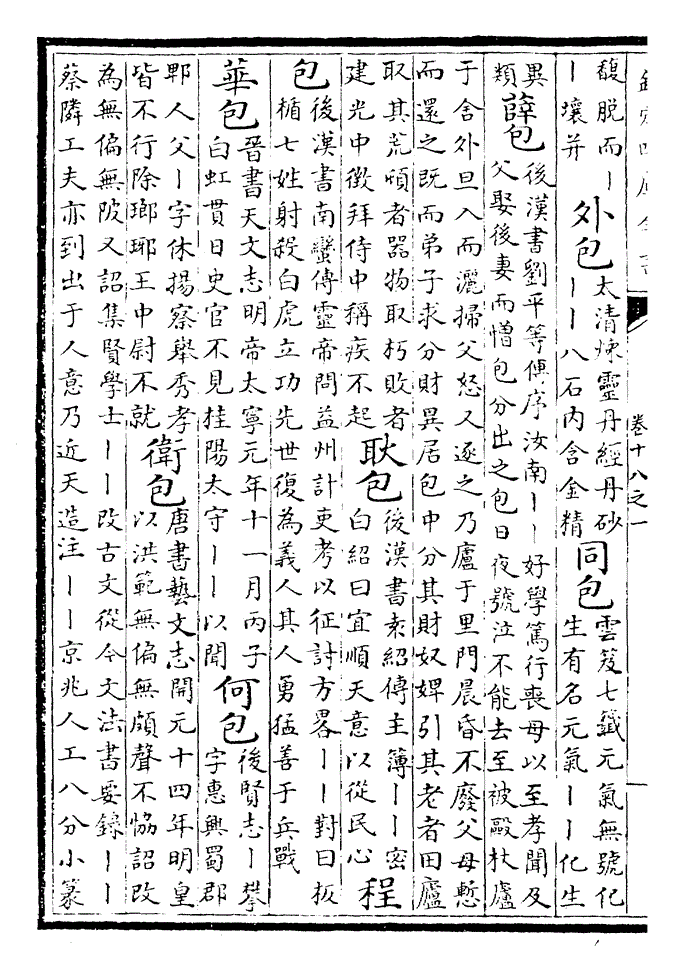 欽定四庫全書
卷十八之一
馥脱而丨
丨壤并
外包
太清煉靈丹經丹砂
丨丨八石内含金精
同包
雲笈七籤元氣無號化
生有名元氣丨丨化生
異
類
薛包
後漢書劉平等傳序汝南丨丨好學篤行喪母以至孝聞及
父娶後妻而憎包分出之包日夜號泣不能去至被毆杖廬
于舍外旦入而灑掃父怒又逐之乃廬于里門晨昏不廢父母慙
而還之既而弟子求分財異居包中分其財奴婢引其老者田廬
取其荒頓者器物取朽敗者
建光中徵拜侍中稱疾不起
耿包
後漢書袁紹傳主簿丨丨密
白紹曰宜順天意以從民心
程
包
後漢書南蠻傳靈帝問益州計吏考以征討方畧丨丨對曰板
楯七姓射殺白虎立功先世復為義人其人勇猛善于兵戰
華包
晉書天文志明帝太寧元年十一月丙子
白虹貫日史官不見桂陽太守丨丨以聞
何包
後賢志丨攀
字惠興蜀郡
郫人父丨字休揚察舉秀孝
皆不行除瑯琊王中尉不就
衛包
唐書藝文志開元十四年明皇
以洪範無偏無頗聲不恊詔改
為無偏無陂又詔集賢學士丨丨改古文從今文法書要錄丨丨
蔡隣工夫亦到出于人意乃近天造注丨丨京兆人工八分小篆